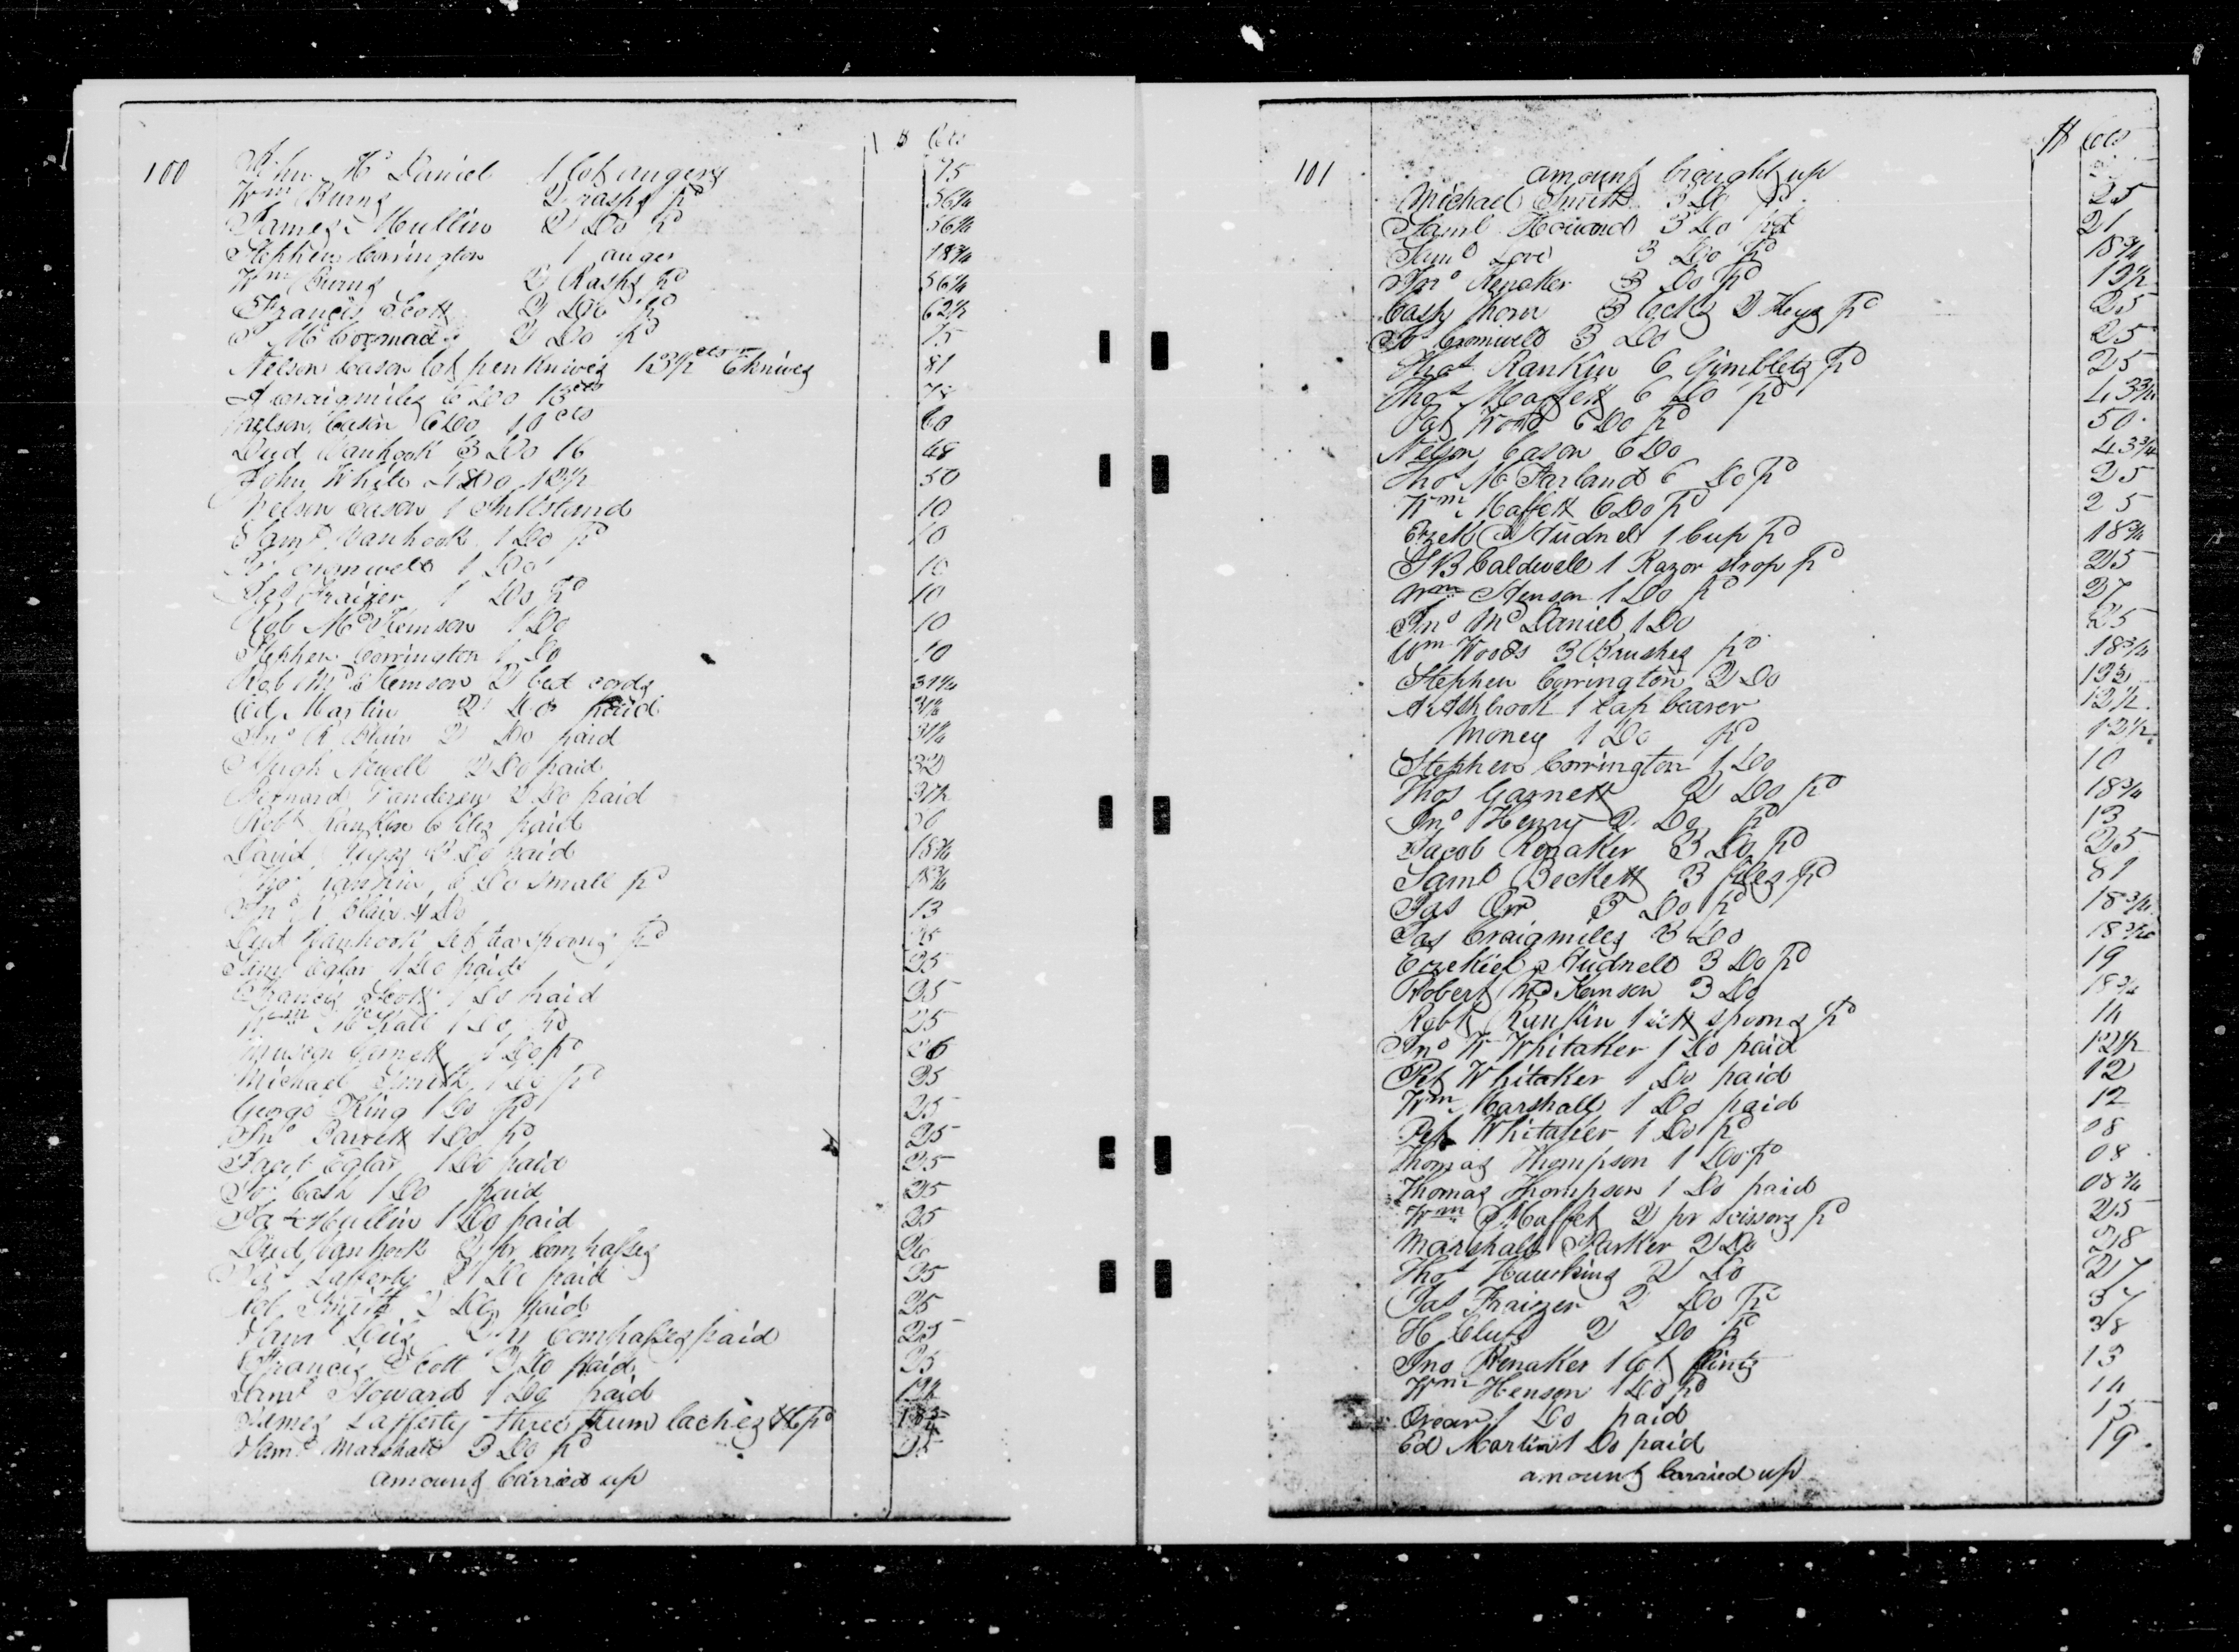 100
$ Cts
John Mc Daniel 1 lot augers 75
Wm Burns 2 rasps pd 56¼
James Mullin 2 Do pd 56¼
Stephen Corrington 1 auger 18¾
Wm Burns 2 Rasps pd 56¼
Francis Scott 2 Do pd 62½
Mc Cormack 2 Do pd 75
Nelson Cason lot penknives 13½ cts 6 knives 81
A Craigmiles 6 Do 13 cts 78
Nelson Cason 6 Do 10 cts 60
Dud Vanhook 3 Do 16 48
John White 4 Do 12½ 50
Nelson Cason 1 Inkstand 10
Saml Vanhook 1 Do pd 10
Cromwell 1 Do 10
Jas Fraizer 1 Do pd 10
Rob Mc Kemson 1 Do 10
Stephen Corrington 1 Do 10
Rob Mc Kemson 2 bed cords 31¼
Ed Martin 2 Do paid
Jno R Blair 2 Do paid 31¼
Hugh Newell 2 Do paid 32
2 Do paid 31½
Robt Rankin 6 files paid
David 3 Do paid 18¾
Thos Rankin 6 Do small pd 18¾
Jno R Blair 4 Do 13
Dud Vanhook set tea spoons pd
Saml Eglar 1 Do paid 25
Francis Scott 1 Do paid 25
Wm Mc Call 1 Do pd 25
Garnett 1 Do pd 26
Michael Smith 1 Do pd 25
George King 1 Do pd 25
Jno Barrett 1 Do pd 25
Jacob Eglar 1 Do paid 25
Cash 1 Do paid 25
Jas Mullin 1 Do paid 25
Dud Vanhook 2 pr Compasses 26
Lafferty 2 Do paid 25
Rob Smith 2 Do paid 25
Saml 2 pr Compasses paid 25
Francis Scott 2 Do paid 25
Saml Howard 1 Do paid
James Lafferty three thum laches pd
Saml Marshall 3 Do pd
amount Carried up
101
$ Cts
amount brought up
Michael Smith 3 Do pd 25
Saml Howard 3 Do pd 21
Saml Love 3 Do pd 18¾
Jno Renaker 3 Do pd 12½
Cash Thorn 3 locks 2 Keys pd 25
Cromwell 3 Do 25
Thos Rankin 6 Gimblets pd 25
Thos Maffett 6 Do pd 43¾
Pat Ward 6 Do pd 50
Nelson Cason 6 Do 43¾
Thos Mc Farland 6 Do pd 25
Wm Maffett 6 Do pd 25
Ezek Studnel 1 Cup pd 18¾
J B Caldwell 1 Razor strop pd 25
Wm Henson 1 Do pd 27
Jno Mc Daniel 1 Do 25
Wm Woods 3 Brushes pd 18¾
Stephen Corrington 2 Do
A Ashbrook 1 Cap bearer 12½
Money 1 Do pd 12½
Stephen Corrington 1 Do 10
Thos Garnett 2 Do pd 18¾
Jno Henry 2 Do pd 13
Jacob Renaker 3 Do pd 25
Saml Beckett 3 files pd 81
Jas Orr 3 Do pd 18¾
Jas Craigmiles 3 Do 18¾
Ezekiel Studnell 3 Do pd 19
Robert Mc Kemson 3 Do 18¾
Robt Rankin 1 sett spoons pd 14
Jno W Whitaker 1 Do paid 12½
Pet Whitaker 1 Do paid 12
Wm Marshall 1 Do paid 12
Pet Whitaker 1 Do pd 08
Thomas Thompson 1 Do pd 08
Thomas Thompson 1 Do paid 08¾
Wm Maffet 2 pr scissors pd 25
Marshall Parker 2 Do 28
Thos Hawkins 2 Do 27
Jas Fraizer 2 Do pd 37
H Cluts 2 Do pd 38
Jno Renaker 1 lot flints 13
Wm Henson 1 Do pd 14
Orear 1 Do paid 15
Ed Martin 1 Do paid 19
amount Carried up